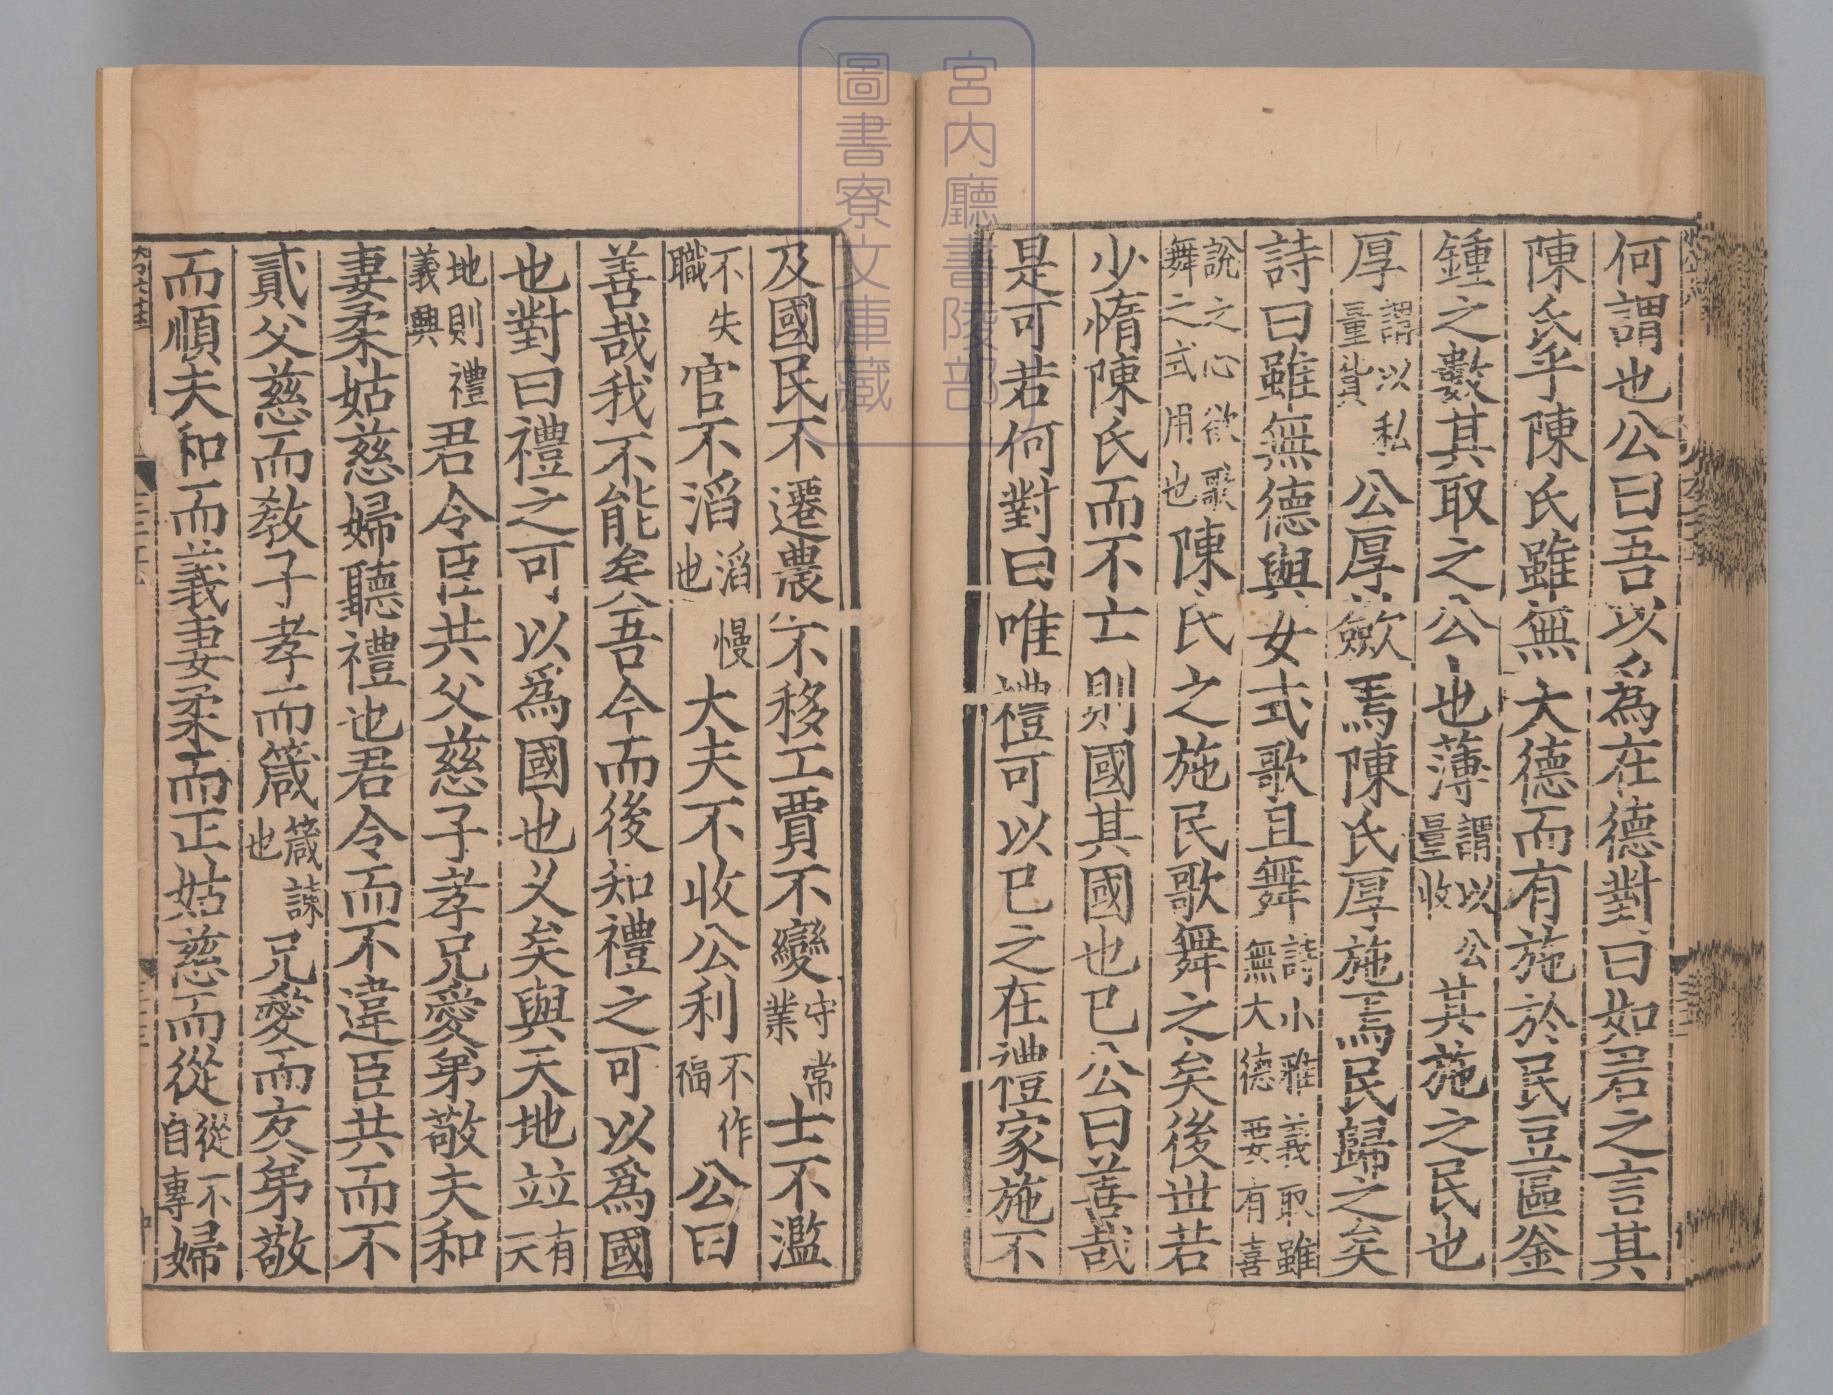 何謂也公曰吾以爲在德對曰如君之言其
陳氏乎陳氏雖無大德而有施於民豆區釜
鍾之數其取之公也薄謂以公量收其施之民也
厚謂以私量貸公厚歛焉陳氏厚施焉民歸之矣
詩曰雖無德與女式歌且舞詩小雅義取雖無大德要有喜
說之心欲歌舞之式用也陳氏之施民歌舞之矣後世若
少惰陳氏而不亡則國其國也已公曰善哉
是可若何對曰唯禮可以已之在禮家施不
及國民不遷農不移工賈不變守常業士不濫
不失職官不滔滔慢也大夫不收公利不作福公曰
善哉我不能矣吾今而後知禮之可以爲國
也對曰禮之可以爲國也乆矣與天地竝有天
地則禮義興君令臣共父慈子孝兄愛弟敬夫和
妻柔姑慈婦聽禮也君令而不違臣共而不
貳父慈而敎子孝而箴箴諫也兄愛而友弟敬
而順夫和而義妻柔而正姑慈而從從不自專婦
宮内廳書陵部
圖書寮文庫藏